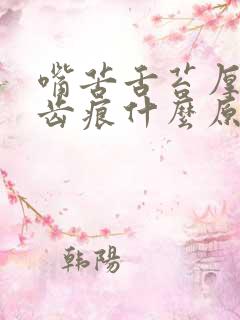 嘴苦舌苔厚
齿痕什麼原
韩陽